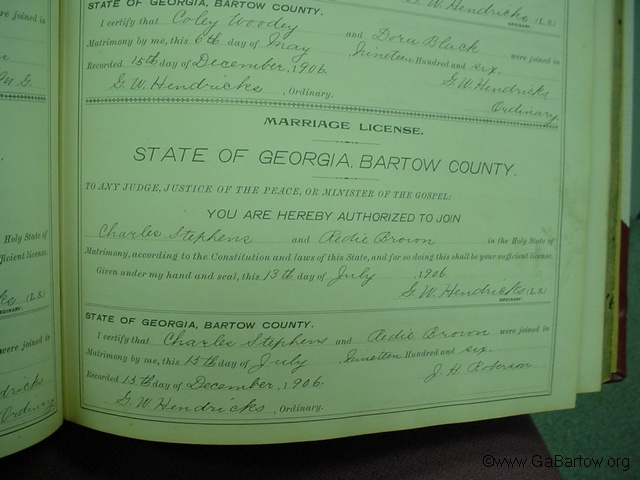 G. W. Hendricks (L. S.)
ORDINARY.
STATE OF GEORGIA, BARTOW COUNTY.
I certify that Coley Woodey and Dora Black were joined in
Matrimony by me, this 6th day of May Nineteen Hundred and six.
Recorded 15th day of December, 1906. G. W. Hendricks
G. W. Hendricks, Ordinary. Ordinary
MARRIAGE LICENSE.
STATE OF GEORGIA, BARTOW COUNTY.
TO ANY JUDGE, JUSTICE OF THE PEACE, OR MINISTER OF THE GOSPEL:
YOU ARE HEREBY AUTHORIZED TO JOIN
Charles Stephens and Redie Brown in the Holy State of
Matrimony, according to the Constitution and laws of this State, and for so doing this shall be your sufficient license.
Given under my hand and seal, this 13th day of July 1906
G. W. Hendricks (L. S.)
ORDINARY.
STATE OF GEORGIA, BARTOW COUNTY.
I certify that Charles Stephens and Redie Brown were joined in
Matrimony by me, this 15th day of July Nineteen Hundred and six.
Recorded 15th day of December, 1906. J. H. Roberson
G. W. Hendricks, Ordinary.
Holy State of
ficient license.
(L. S.)
ORDINARY.
were joined in
dricks
Ordinary
©www.GaBartow.org